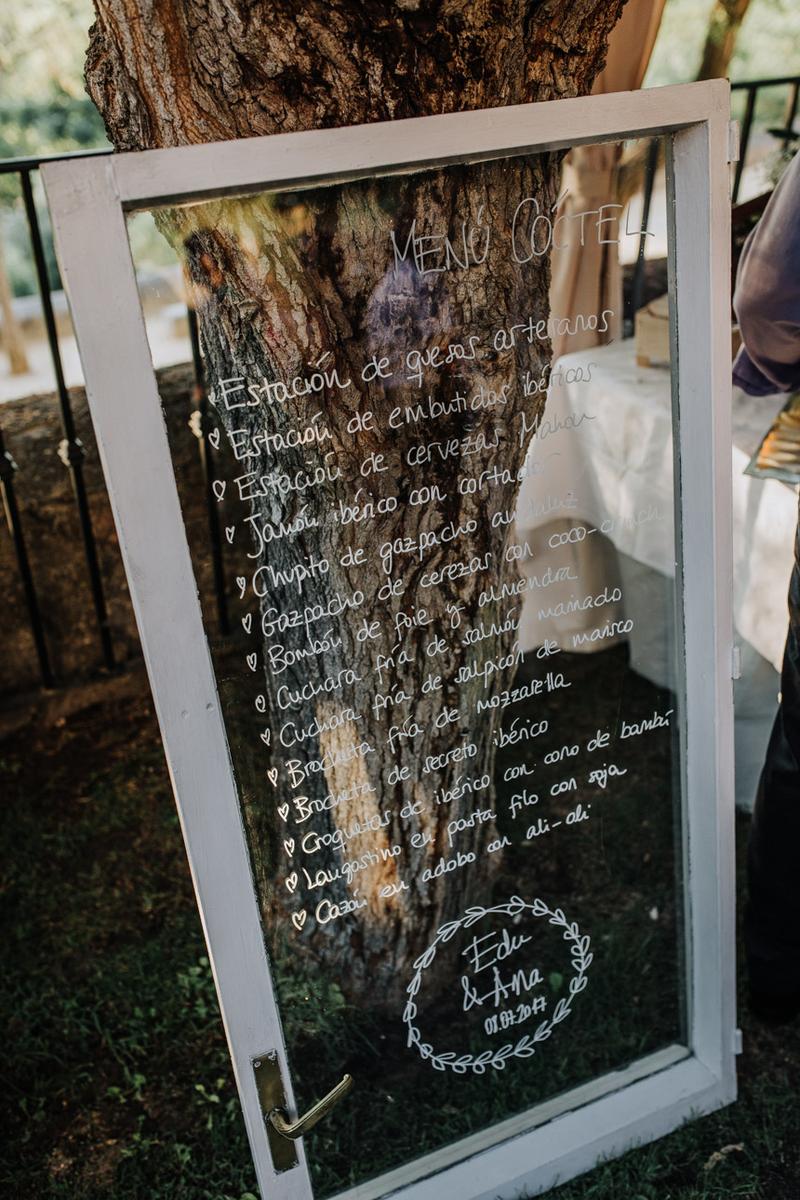 MENÚ CÓCTEL
Estación de quesos artesanos
Estación de embutidos ibéricos
Estación de cervezas Mahou
Jamón ibérico con cortador
Chupito de gazpacho andaluz
Gazpacho de cerezas con coco-crunch
Bombón de foie y almendra
Cuchara fría de salmón marinado
Cuchara fría de salpicón de marisco
Brocheta fría de mozzarella
Brocheta de secreto ibérico
Croquetas de ibérico con cono de bambú
Langostino en pasta filo con soja
Cazón en adobo con ali-oli
Edu
& Ana
08.07.2017